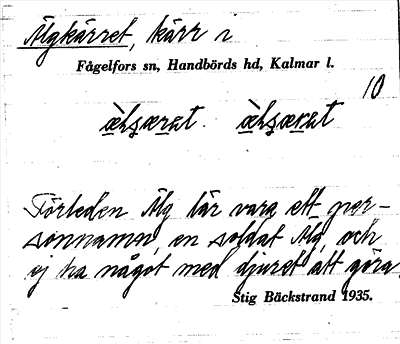 Älgkärret, kärr
Fågelfors sn, Handbörds hd, Kalmar l.
10
Förleden Älg lär vara ett per-
sonnamn, en soldat Älg, och
ej ha något med djuret att göra.
Stig Bäckstrand 1935.